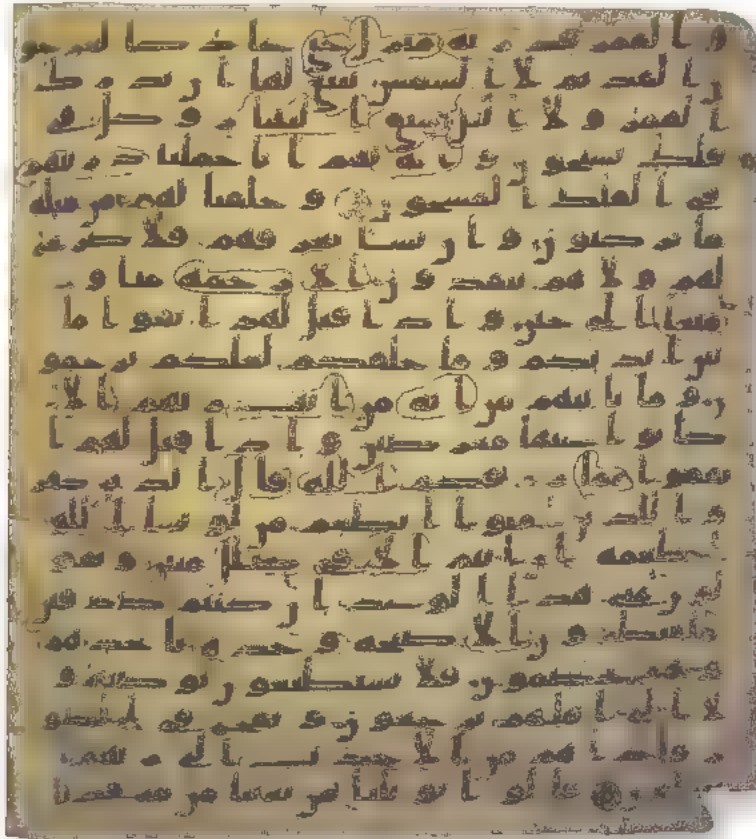 و القمر قدرنه منازل حتى عاد كالعرجو
ن القديم لا الشمس ينبغي لها ان تدرك
القمر و لا اليل سابق النهار و كل في
فلك يسبحون و اية لهم انا حملنا ذريتهم
في الفلك المشحون و خلقنا لهم من مثله
ما يركبون و ان نشا نغرقهم فلا صريخ
لهم و لا هم ينقذون الا رحمة منا و
متاعا الى حين و اذا قيل لهم اتقوا ما
بين ايديكم و ما خلفكم لعلكم ترحمو
ن و ما تاتيهم من اية من ايت ربهم الا
كانوا عنها معرضين و اذا قيل لهم ا
نفقوا مما رزقكم الله قال الذين كفر
وا للذين امنوا انطعم من لو يشا الله
اطعمه ان انتم الا في ضلل مبين و يقو
لون متى هذا الوعد ان كنتم صدقين
ما ينظرون الا صيحة وحدة تاخذهم
و هم يخصمون فلا يستطيعون توصية و
لا الى اهلهم يرجعون و نفخ في الصو
ر فاذا هم من الاجدث الى ربهم
ينسلون قالوا يويلنا من بعثنا من مرقدنا